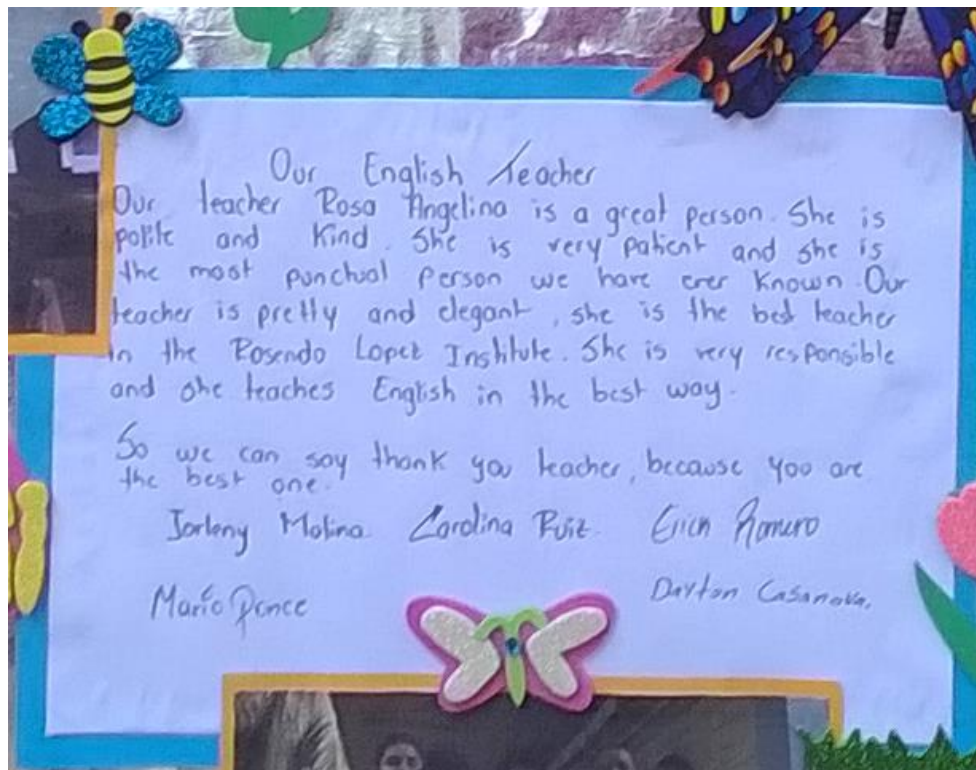 Our English Teacher
Our teacher Rosa Angelina is a great person. She is
polite and kind. She is very patient and she is
the most punctual person we have ever known. Our
teacher is pretty and elegant, she is the best teacher
in the Rosendo Lopez Institute. She is very responsible
and she teaches English in the best way.
So we can say thank you teacher, because you are
the best one.
Jarleny Molina. Carolina Ruiz. Erich Romero
Mario Ponce Dayton Casanova.